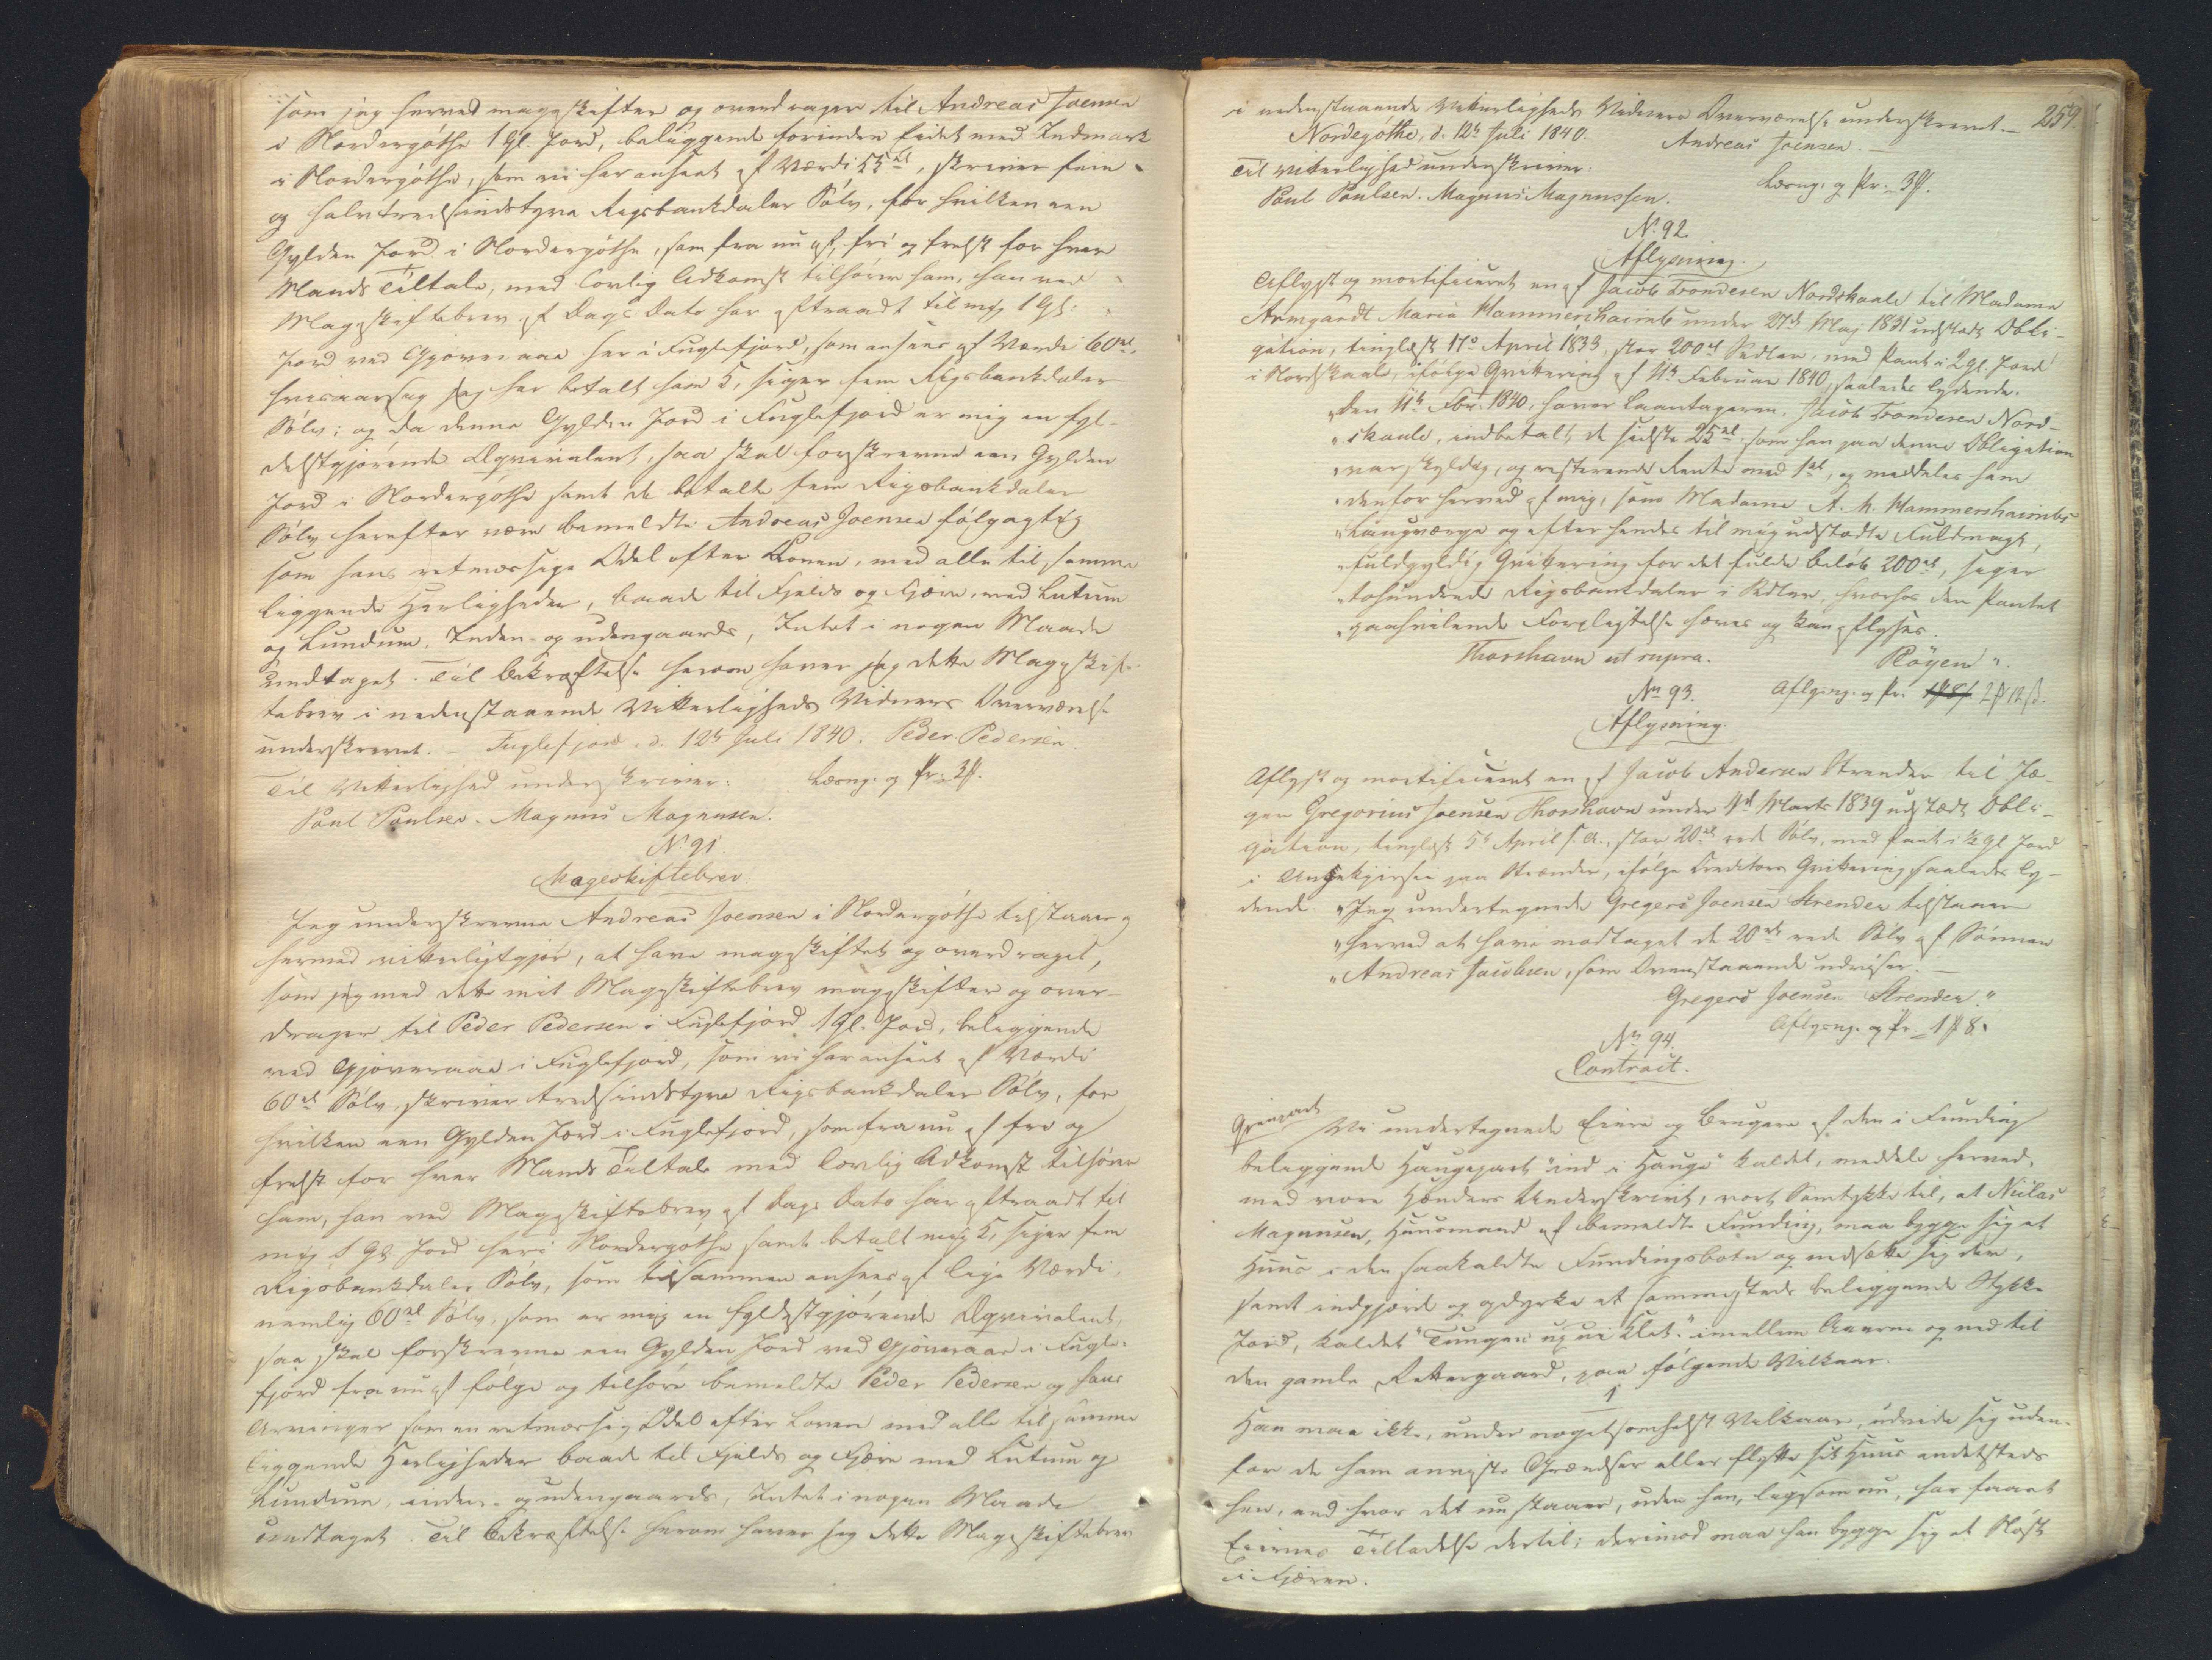 som jeg herved mageskifter og overdrager til Andreas Joensen
i Nordregøthe 1 Gl. Jord, beliggende forinden Eidet med Indmark
i Nordregøthe, som vi har anseet af Værdi 55 rd, skriver fem
og halvtredsindstyve Rigsbankdaler Sølv, for hvilken een
Gylden Jord i Nordregøthe, som fra nu af, fri og frelst for hver
Mands Tiltale, med lovlig Adkomst tilhører ham, han ved
Mageskiftebrev af Dags Dato har aftraadt til mig 1 Gl:
Jord ved Gjøveraae her i Fuglefjord, som ansees af Værdi 60 rd,
hvesaarsag jeg har betalt ham 5, siger fem Rigsbankdaler
Sølv; og da denne Gylden Jord i Fuglefjord er mig en fyl-
destgjørende Æqvivalent, saa skal forskrevne een Gylden
Jord i Nordregøthe samt de betalte fem Rigsbankdaler
Sølv herefter være bemeldte Andreas Joensen følgagtig
som hans retmæssige Odel efter Loven, med alle til samme
liggende Herligheder, baade til Fjelds og Fjære, med Luttum
og Lundum, Inden- og udengaards, Intet i nogen Maade
undtaget. Til Bekræftelse herom haver jeg dette Mageskif-
tebrev i nedenstaaende Vitterligheds Vidners Overværelse
underskrevet. - Fuglefjord, d. 12te Juli 1840. Peder Pedersen
Til Vitterlighed underskriver: Læsng. og Pr. 3ß.
Poul Poulsen. Magnus Magnusen.
No. 91.
Mageskiftebrev.
Jeg underskrevne Andreas Joensen i Nordregøthe tilstaaer og
hermed vitterligtgjør, at have mageskiftet og overdraget,
som jeg med dette mit Mageskiftebrev mageskifter og over-
drager til Peder Pedersen i Fuglefjord 1 Gl. Jord, beliggende
ved Gjøveraae i Fuglefjord, som vi har anseet af Værdi
60 rd Sølv, skriver tredsindstyve Rigsbankdaler Sølv, for
hvilken een Gylden Jord i Fuglefjord, som fra nu af fri og
frelst for hver Mands Tiltale med lovlig Adkomst tilhører
ham, han ved Mageskiftebrev af Dags Dato har aftraadt til
mig 1 Gl. Jord her i Nordregøthe samt betalt mig 5, siger fem
Rigsbankdaler Sølv, som tilsammen ansees af lige Værdi,
nemlig 60 rd Sølv, som er mig en fyldestgjørende Æqvivalent,
saa skal forskrevne een Gylden Jord ved Gjøveraae i Fugle-
fjord fra nu af følge og tilhøre bemeldte Peder Pedersen og hans
Arvinger som en retmæssig Odel efter Loven med alle til samme
liggende Herligheder baade til Fjelds og Fjære med Luttum og
Lundum, inden- og udengaards, Intet i nogen Maade
undtaget. Til Bekræftelse herom haver jeg dette Mageskiftebrev
i nedenstaaende Vitterligheds Vidners Overværelse underskrevet. - 259.
Nordregøthe, d. 12te Juli 1840. Andreas Joensen. -
Til Vitterlighed underskriver:
Poul Poulsen. Magnus Magnussen. Læsng. og Pr. 3ß.
No. 92.
Aflysning.
Aflyst og mortificeret en af Jacob Trondesen Nordskaale til Madame
Armgardt Maria Hammershaimb under 27de Maj 1831 udstædt Obli-
gation, tinglæst 17de April 1833, stor 200 rd Sedler, med Pant i 2 Gl. Jord
i Nordskaale, ifølge Qvittering af 11te Februar 1840, saaledes lydende.
"Den 11te Febr. 1840, haver Laantageren, Jacob Trondesen Nord-
"skaale, indbetalt de sidste 25 rd, som han paa denne Obligation
"var skyldig, og resterende Rente med 1 rd, og meddeles ham
"derfor herved af mig, som Madame A. M. Hammershaimbs
"Laugværge og efter hendes til mig udstædte Fuldmagt,
"fuldgyldig Qvittering for det fulde Beløb 200 rd, siger
"tohundrede Rigsbankdaler i Sedler, hvorhos den Pantet
"paahvilende Forpligtelse hæves og kan aflyses.
Thorshavn ut supra. Pløyen".
No. 93. Aflysng. og Pr. 2ß 12ß.
Aflysning.
Aflyst og mortificeret en af Jacob Andersen Strender til Jæ-
ger Gregorius Joensen Thorshavn under 4de Marts 1839 udstædt Obli-
gation, tinglæst 5te April s. A., stor 20 rd rede Sølv, med Pant i ½ Gl Jord
i paa Strender, ifølge Creditors Qvittering saaledes ly-
dende. "Jeg undertegnede Gregers Joensen Strender tilstaaer
"herved at have modtaget de 20 rd rede Sølv af Sønnen
"Andreas Jacobsen, som Ovenstaaende udviser. -
Gregers Joensen Strender."
No. 94. Aflysng. og Pr. 1ß 8.
Contract.
Vi undertegnede Eiere og Brugere af den i Funding
beliggende Haugepart "ind i Hauge" kaldet, meddele herved,
med vore Hænders Underskrivt, vort Samtykke til, at Niclas
Magnusen, Huusmand af bemeldte Funding, maa bygge sig et
Huus i den saakaldte Fundingsbotn og nedsætte sig der,
samt indgjærde og opdyrke et sammesteds beliggende Stykke
Jord, kaldet "Tungen ", imellem Aaerne og ned til
den gamle Rettergaard, paa følgende Vilkaar.
1
Han maa ikke, under nogetsomhelst Vilkaar, udvide sig uden-
for de ham anviste Grændser eller flytte sit Huus andetsteds
hen, end hvor det nu staaer, uden han, ligesom nu, har faaet
Eiernes Tilladelse dertil; derimod maa han bygge sig et Nøst
i Fjæren.